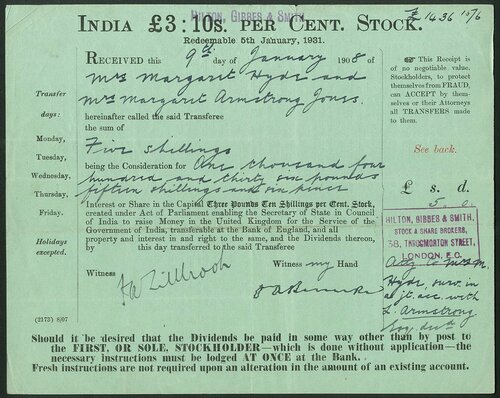 HILTON, GIBBES & SMITH.
£1436 15/6
INDIA £3:10s. PER CENT. STOCK.
Redeemable 5th January, 1931.
RECEIVED this 9th day of January 1908 of
Mrs Margaret Hyde and
Mrs Margaret Armstrong Jones
hereinafter called the said Transferee
the sum of
Five shillings
being the Consideration for One thousand four
hundred and thirty six pounds
fifteen shillings and six pence
Interest or Share in the Capital Three Pounds Ten Shillings per Cent. Stock,
created under Act of Parliament enabling the Secretary of State in Council
of India to raise Money in the United Kingdom for the Service of the
Government of India, transferable at the Bank of England, and all
property and interest in and right to the same, and the Dividends thereon,
by this day transferred to the said Transferee
Witness my Hand
Witness
Transfer
days:
Monday,
Tuesday,
Wednesday,
Thursday,
Friday.
Holidays
excepted.
☞ This Receipt is
of no negotiable value.
Stockholders, to protect
themselves from FRAUD,
can ACCEPT by them-
selves or their Attorneys
all TRANSFERS made
to them.
See back.
£ s. d.
5. 0
HILTON, GIBBES & SMITH.
STOCK & SHARE BROKERS,
38, THROGMORTON STREET,
LONDON, E.C.
to Mrs M.
Hyde, surv. in
a jt. acc. with
L. Armstrong
(2173) 8/07
Should it be desired that the Dividends be paid in some way other than by post to
the FIRST, OR SOLE, STOCKHOLDER—which is done without application—the
necessary instructions must be lodged AT ONCE at the Bank.
Fresh instructions are not required upon an alteration in the amount of an existing account.